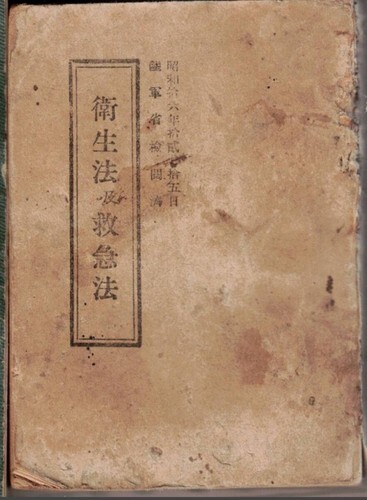 昭和拾六年拾貳月拾五日
陸軍省檢閲濟
衛生法及救急法